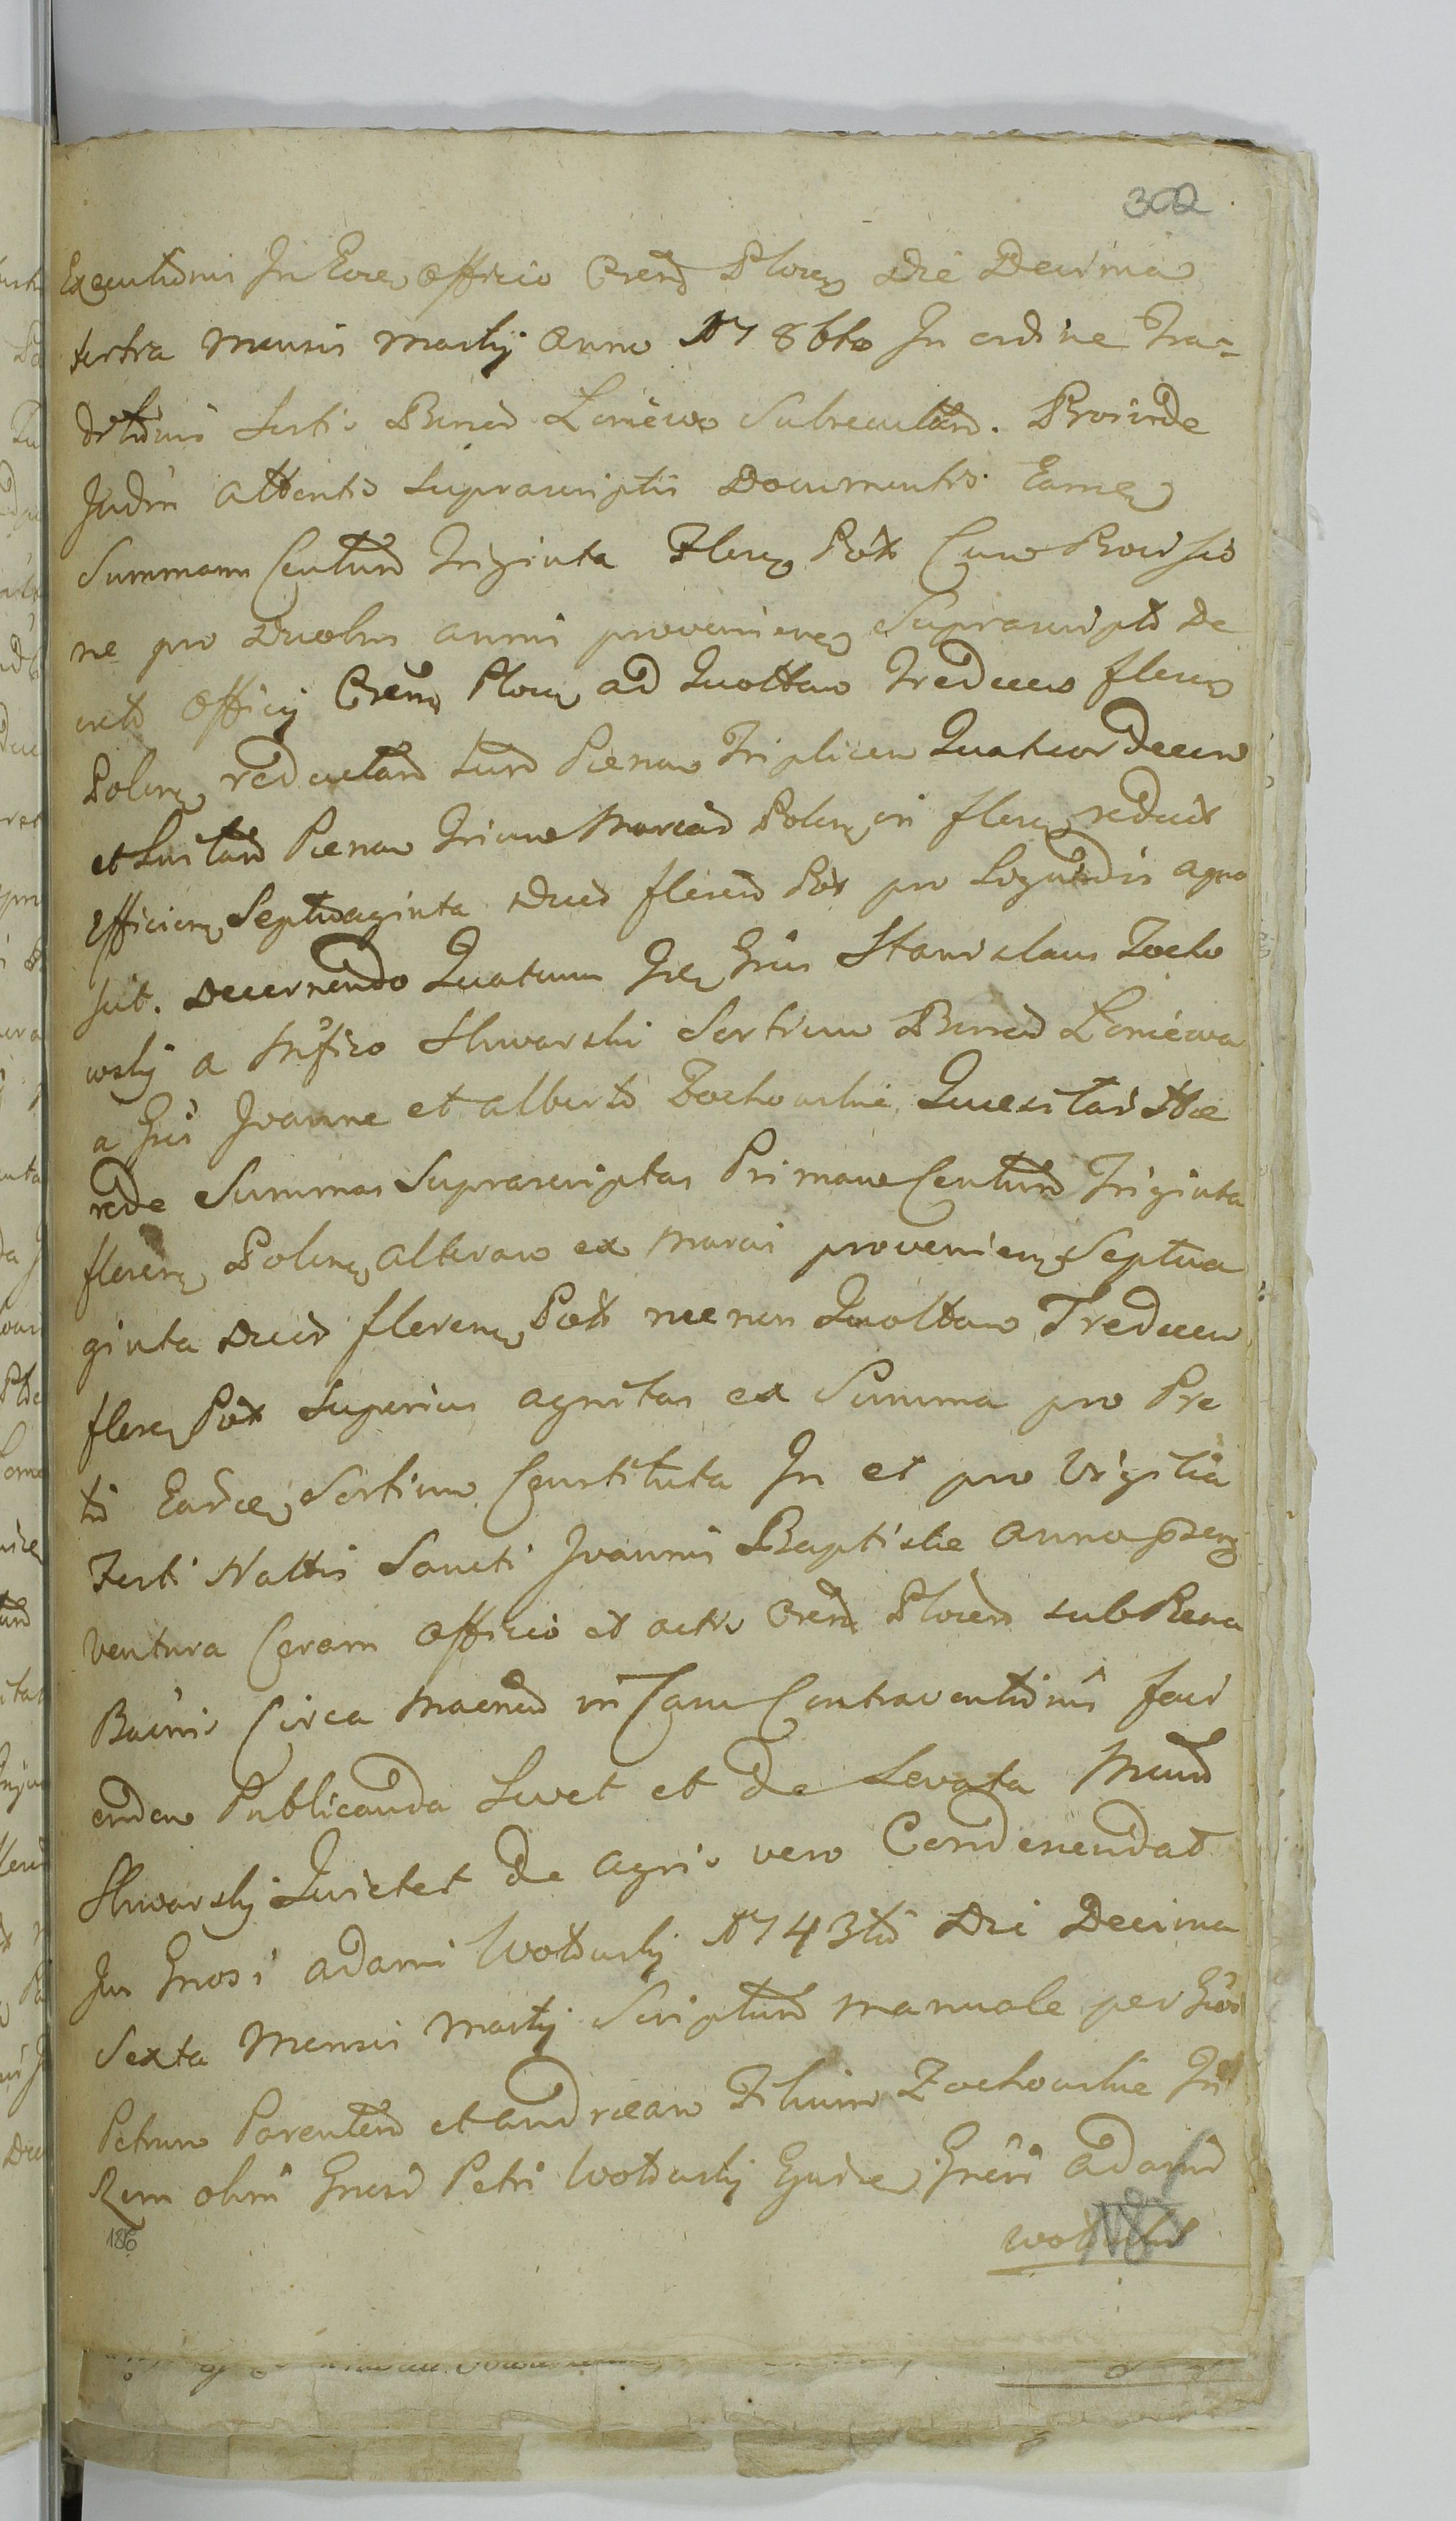 302
Executionis In Eoe Officio Crens Plocen Die Decima
tertia Mensis Martij Anno 1786to In ordine Tra=
ditionis Sortis Bonor Loniewo Subsecutam. Proinde
Judm attentis Suprascriptis Documentis Eamq
Summam Centum Triginta Floren Pol Cum Provisio
ne pro Duobus annis provenien Suprascripto De
creto Officij Crens Plocen ad Quottam Tredecem floren
Polon reductam tum Pœnam Triplicem Quatuordecem
et Luitam Pœnam Trium Marcar Polon in floren reduct
Efficien Septuaginta Duos floren Pol pro Liquidis agno
scit. Decernendo Quatenus Gsus Stanislaus Zocho
wskj a Sluvarski Sortium Bonor Loniewo
a Gsis Joanne et Alberto Zochowskie Quæsitas Hæ
rede Summas Suprascriptas Primam Centum Triginta
floren Polon alteram ex Marcis provenien Septua
ginta Duos floren Pol nec non Quottam Tredecem
floren Pol Superius agnitas ex Summa pro Pre
tio Earde Sortium Constituta In et pro Vigilia
Festi Nattis Sancti Joannis Baptistæ Anno
ventura Coram Officio et actis Crens Plocen sub Pœna
Bannis Circa in Contraventionis faci
endem Publicanda Luet et de Levata
Slwarskj Quietet de agris vero Condenendat
In Gnosi Adami Wotowskj 1743tio Die Decima
Sexta Mensis Martij Scriptum manuale per Gsos
Petrum Parentem et Andream Filium Zochowskie In
Rem olim Gnosi Petri Wotowskj Ejusde Gnosi Adami
186